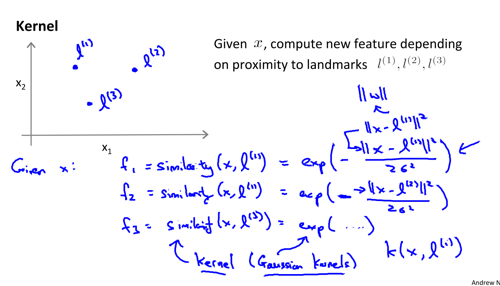 Kernel
Given x, compute new feature depending
on proximity to landmarks l^(1), l^(2), l^(3)
l^(1)
l^(2)
l^(3)
x₂
x₁
||w||
||x - l^(1)||²
Given x: f₁ = similarity(x, l^(1)) = exp(- ||x - l^(1)||² / 2σ²)
f₂ = similarity(x, l^(2)) = exp(- ||x - l^(2)||² / 2σ²)
f₃ = similarity(x, l^(3)) = exp(....)
kernel (Gaussian kernels)
k(x, l^(i))
Andrew N